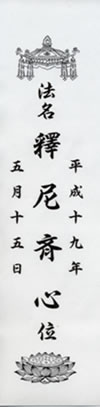 法名 釋尼斉心位
平成十九年
五月十五日